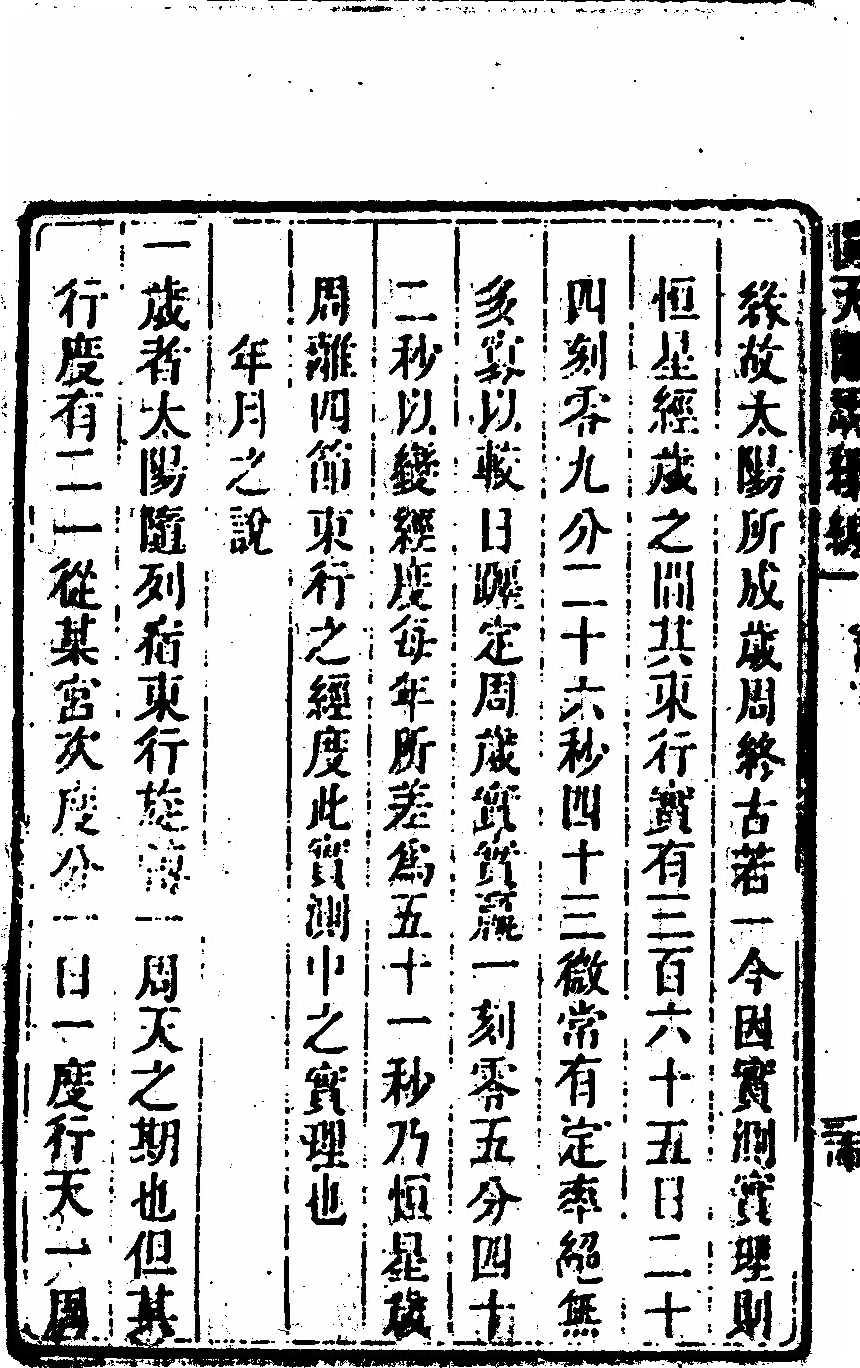 緣故太陽所成歲周終古若一今因實測實理則
恒星經歲之間其東行實有三百六十五日二十
四刻零九分二十六秒四十三微常有定率絕無
多寡以較日躔定周歲實實羸一刻零五分四十
二秒以變經度每年所差為五十一秒乃恒星
周離四節東行之經度此實測中之實理也
年月之說
一歲者太陽隨列宿東行旋一周天之期也但其
行度有二一從某宮次度分一日一度行天一周